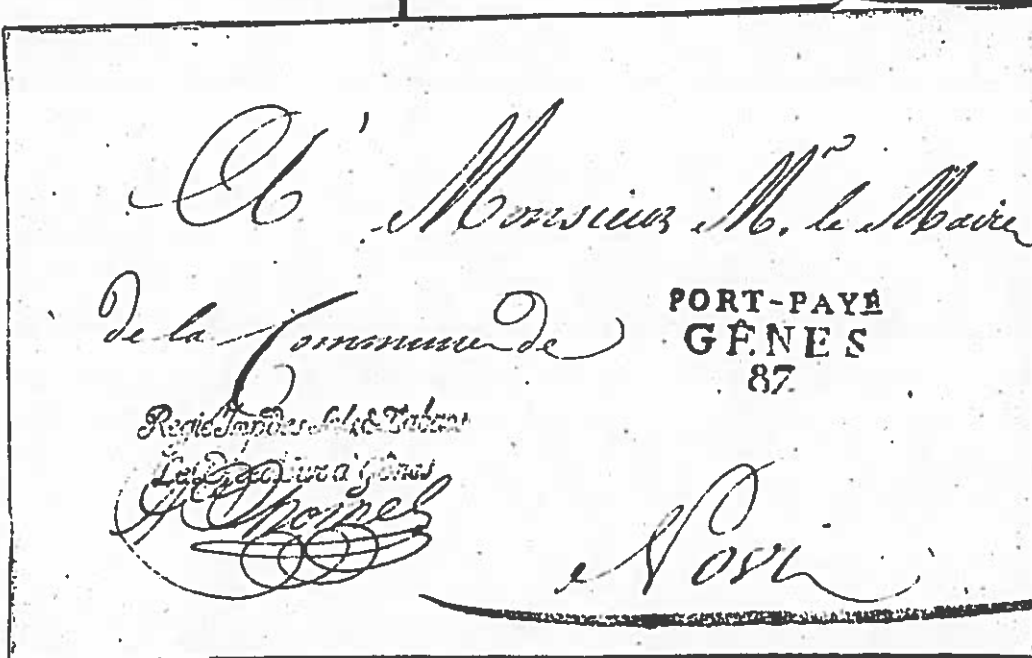 A' Monsieur M.r le Maire
de la Commune de
PORT-PAYÉ
GÊNES
87
Regie Imp des Sels & Tabacs
Le Directeur a' Gênes
Novi